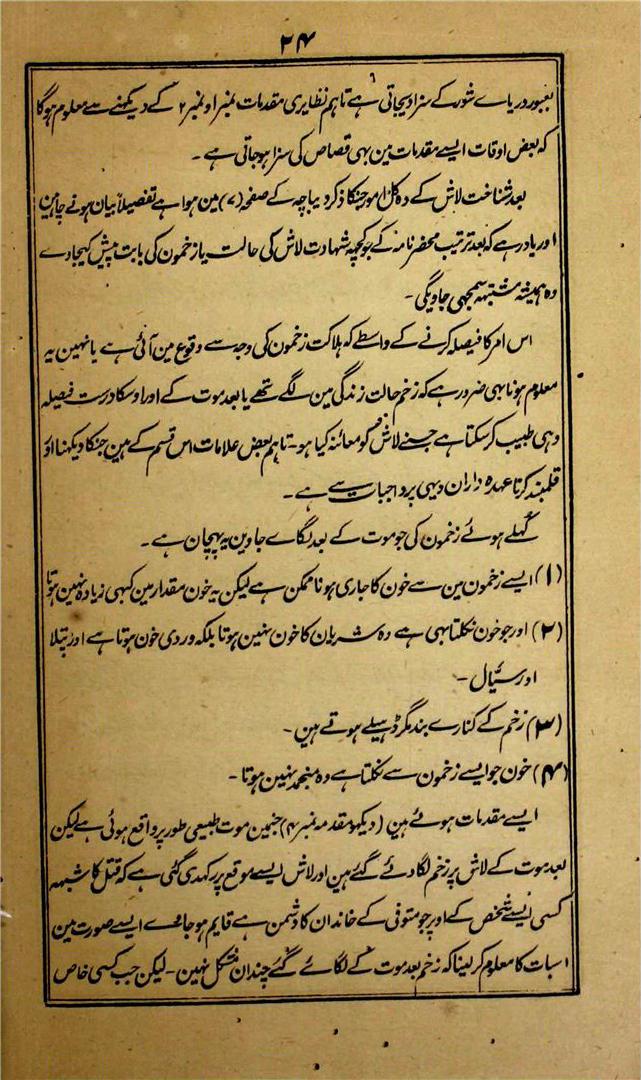 ۲۴
بعبور دریاے شور کے سزا دیجاتی ہے تاہم نظایری مقدمات نمبر او نمبر ۲ کے دیکہنے سے معلوم ہوگا
کہ بعض اوقات ایسے مقدمات مین بہی قصاص کی سزا ہوجاتی ہے -
بعد شناخت لاش کے وہ کل امور جنکا ذکر دیباچہ کے صفحہ (۷) مین ہوا ہے تفصیلاً بیان ہونے چاہین
اور یاد رہے کہ بعد ترتیب محضر نامہ کے جو کچہہ شہادت لاش کی حالت یا زخمون کی بابت پیش کیجاوے
وہ ہمیشہ مشتبہ سمجہی جاویگی -
اس امر کا فیصلہ کرنے کے واسطے کہ ہلاکت زخمون کی وجہ سے وقوع مین آئی ہے یا نہین یہ
معلوم ہونا بہی ضرور ہے کہ زخم حالت زندگی مین لگے تہے یا بعد موت کے اور اوسکا درست فیصلہ
وہی طبیب کرسکتا ہے جسنے لاش کو معائنہ کیا ہو - تاہم بعض علامات اس قسم کے ہین جنکا دیکہنا او
قلمبند کرنا عہدہ داران دیہی پر واجبات سے ہے -
کہلے ہوئے زخمون کی جو موت کے بعد لگاے جاوین یہ پہچان ہے -
(۱) ایسے زخمون مین سے خون کا جاری ہونا ممکن ہے لیکن یہ خون مقدار مین کبہی زیادہ نہین ہوتا
(۲) اور جو خون نکلتا بہی ہے وہ شریان کا خون نہین ہوتا بلکہ وردی خون ہوتا ہے اور پتلا
اور سیّال -
(۳) زخم کے کنارے بند مگر ڈہیلے ہوتے ہین -
(۴) خون جو ایسے زخمون سے نکلتا ہے وہ منجمد نہین ہوتا -
ایسے مقدمات ہوئے ہین (دیکہو مقدمہ نمبر ۴) جنمین موت طبیعی طور پر واقع ہوئی ہے لیکن
بعد موت کے لاش پر زخم لگا دئے گئے ہین اور لاش ایسے موقع پر رکہدی گئی ہے کہ قتل کا شبہہ
کسی ایسے شخص کے اوپر جو متوفی کے خاندان کا دشمن ہے قایم ہوجاے ایسے صورت مین
اسبات کا معلوم کرلینا کہ زخم بعد موت کے لگائے گئے چندان مشکل نہین - لیکن جب کسی خاص